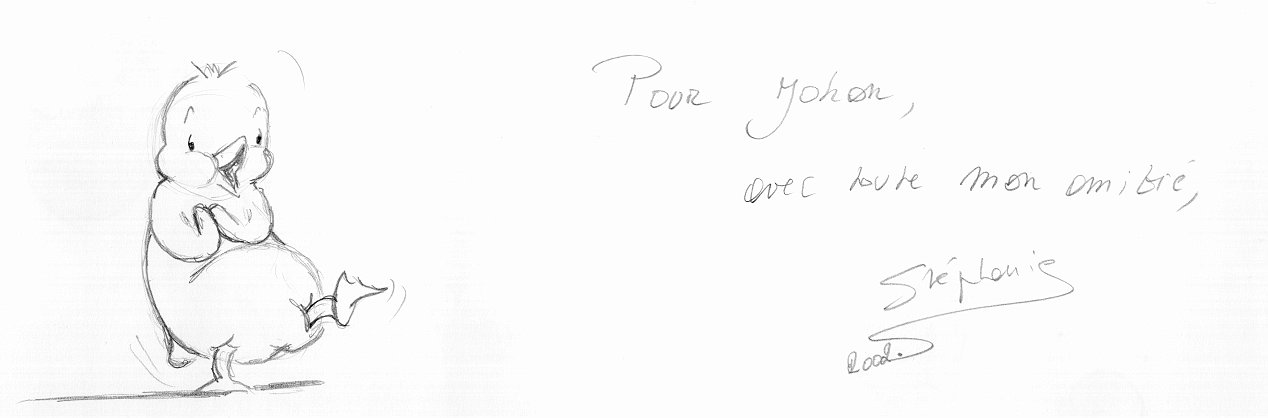 Pour Yohan,
avec toute mon amitié,
Stéphanie
2002.